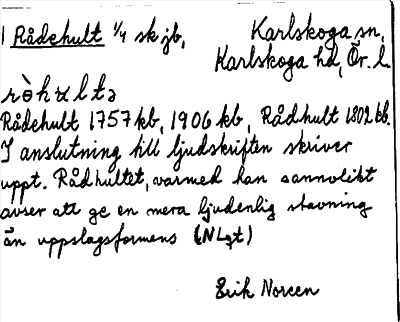 1 Rådehult 1/4 sk jb, Karlskoga sn,
Karlskoga hd, Ör. l.
rò̀hult​ə
Rådehult 1757 kb, 1906 kb, Rådhult 1802 kb.
I anslutning till ljudskriften skriver
uppt. Rådhultet, varmed han sannolikt
avser att ge en mera ljudenlig stavning
än uppslagsformens (NLgt)
Erik Noreen